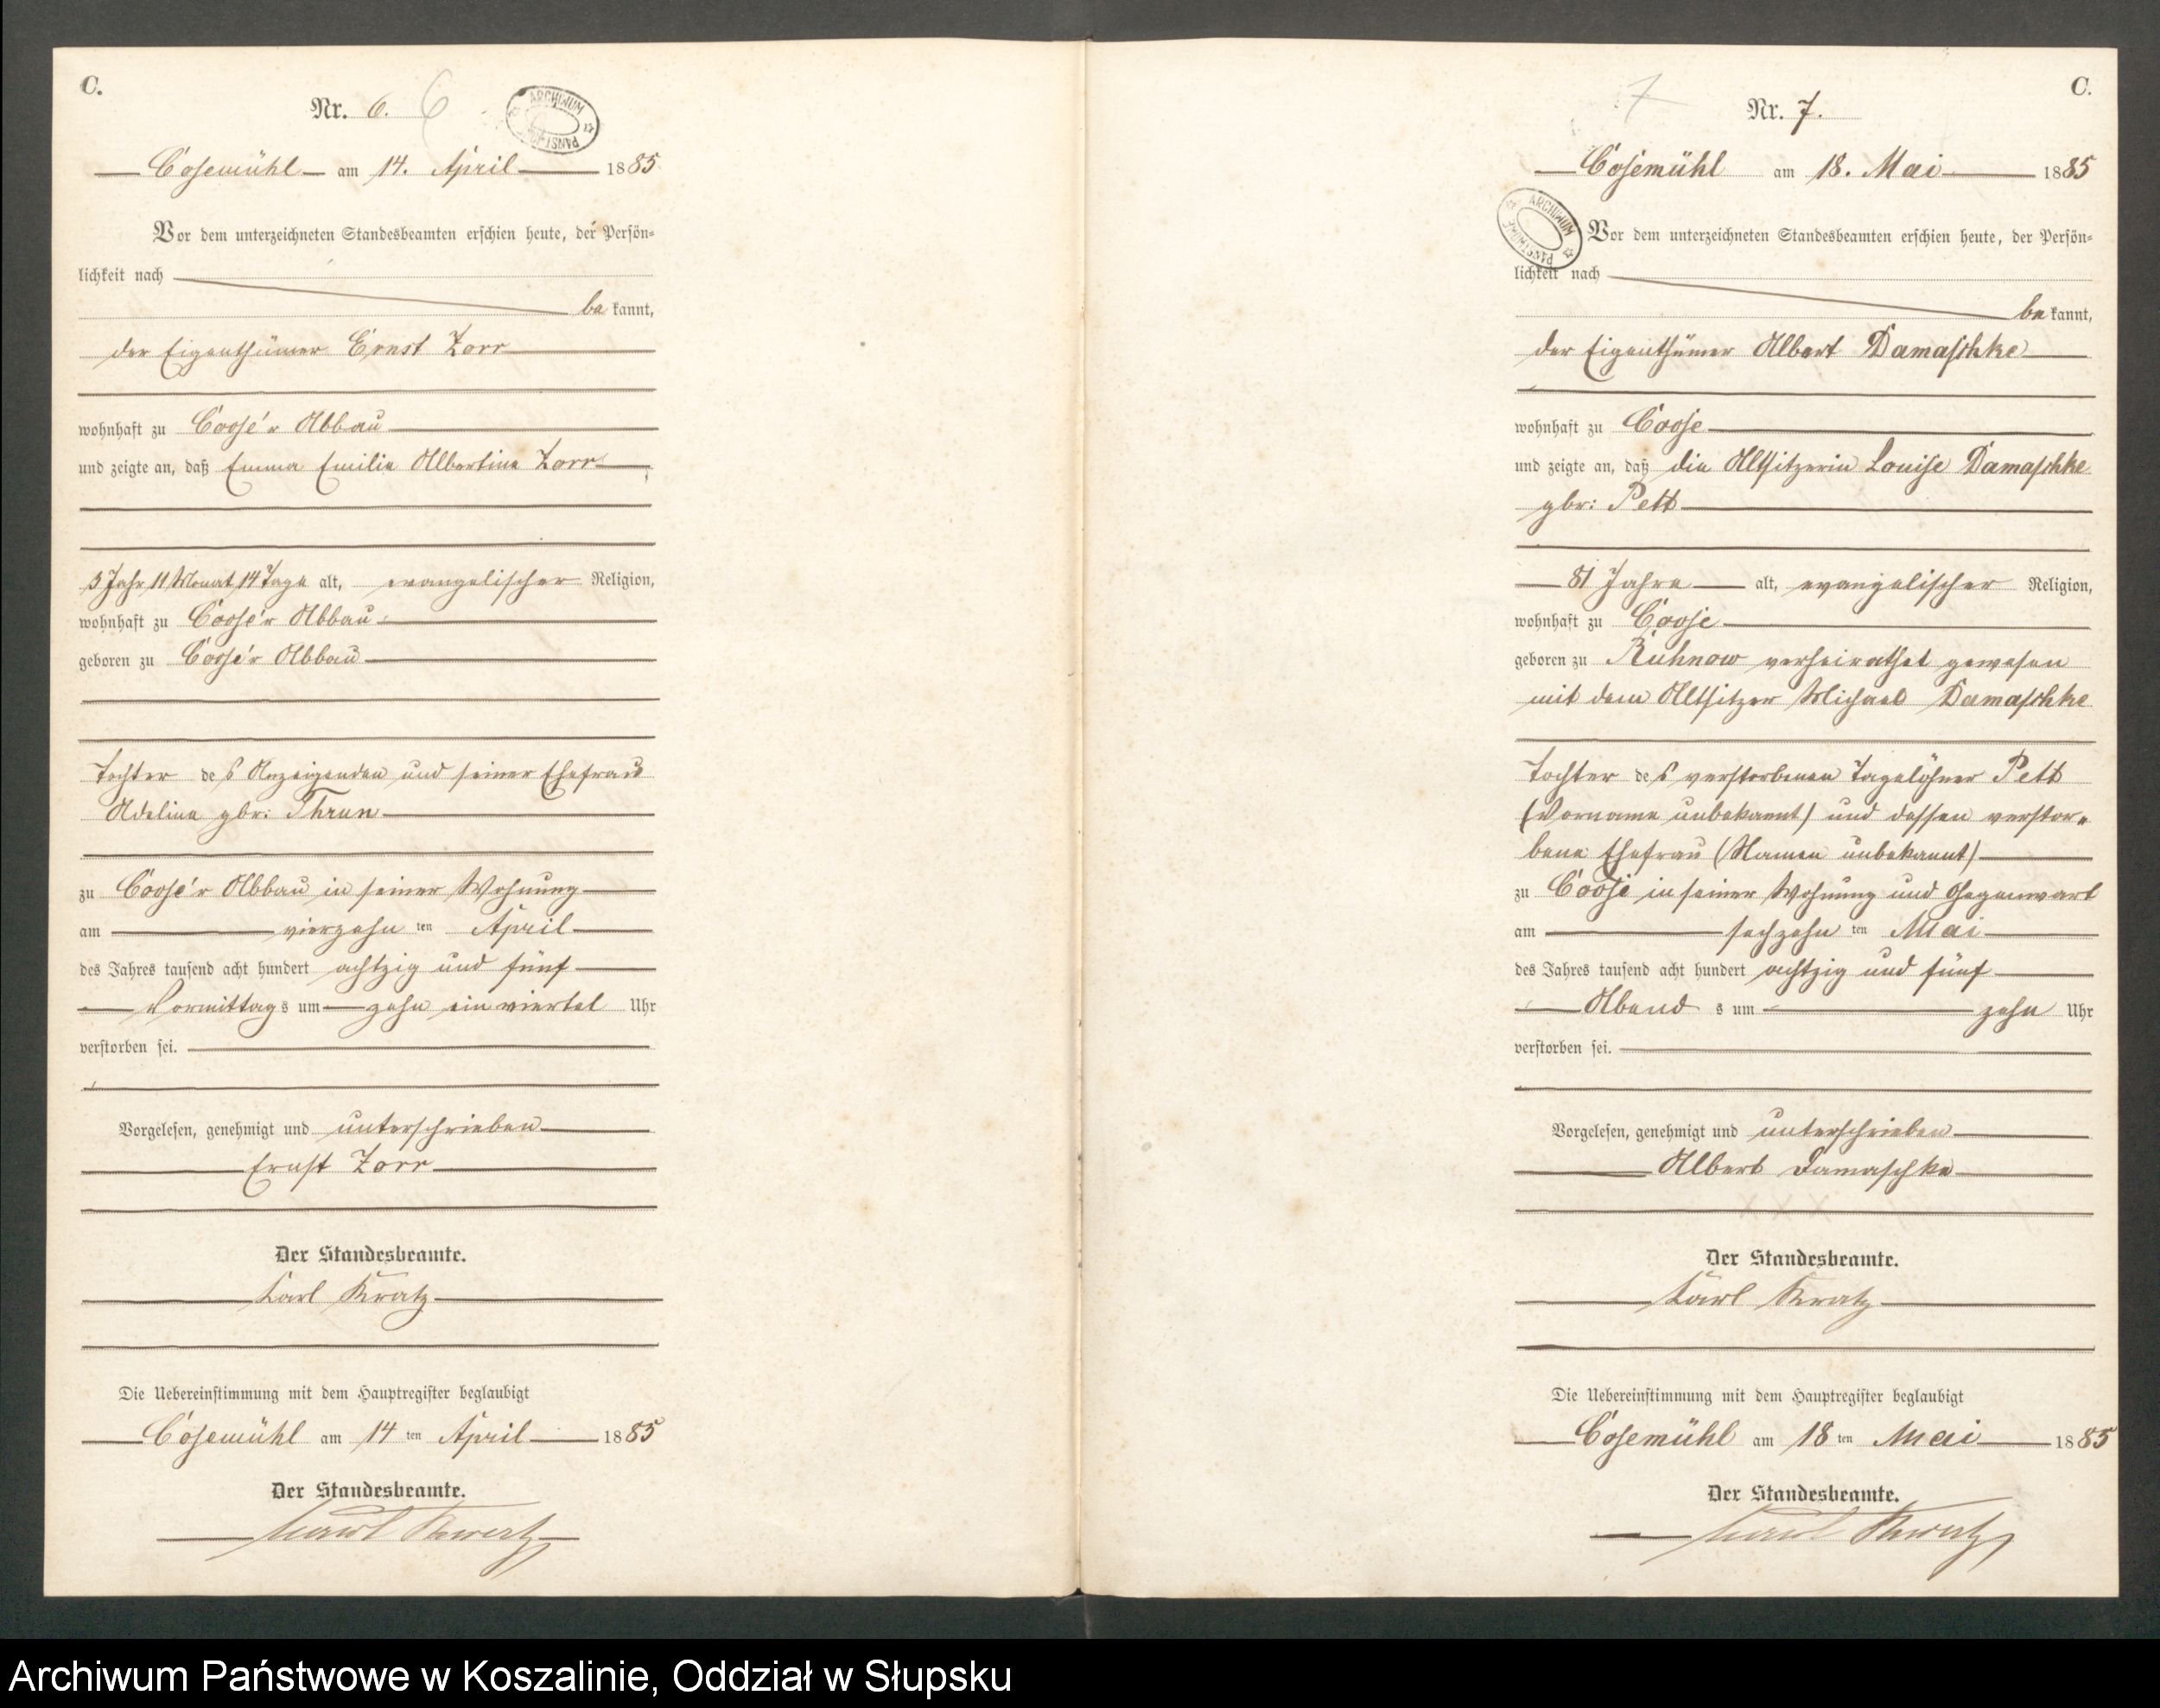 C.
Nr. 6. 6
ARCHIWUM
Cosemühl am 14. April 1885
Vor dem unterzeichneten Standesbeamten erschien heute, der Persön=
lichkeit nach
be kannt,
der Eigenthümer Ernst Zorr
wohnhaft zu Coose'r Abbau
und zeigte an, daß Emma Emilie Albertine Zorr
3 Jahr 11 Monat 14 Tage alt, evangelischer Religion,
wohnhaft zu Coose'r Abbau
geboren zu Coose'r Abbau
Tochter des Anzeigenden und seiner Ehefrau
Adeline gbr: Thrun
zu Coose'r Abbau in seiner Wohnung
am vierzehn ten April
des Jahres tausend acht hundert achtzig und fünf
Vormittags um zehn ein viertel Uhr
verstorben sei.
Vorgelesen, genehmigt und unterschrieben
Ernst Zorr
Der Standesbeamte.
Karl Kratz
Die Uebereinstimmung mit dem Hauptregister beglaubigt
Cosemühl am 14 ten April 1885
Der Standesbeamte.
Karl Kratz
C.
7 Nr. 7.
Cosemühl am 18. Mai 1885
ARCHIWUM
Vor dem unterzeichneten Standesbeamten erschien heute, der Persön=
lichkeit nach
be kannt,
der Eigenthümer Albert Damaschke
wohnhaft zu Coose
und zeigte an, daß die Altsitzerin Louise Damaschke
gbr: Pett
81 Jahre alt, evangelischer Religion,
wohnhaft zu Coose
geboren zu Ruhnow verheirathet gewesen
mit dem Altsitzer Michael Damaschke
Tochter des verstorbenen Tagelöhner Pett
(Vorname unbekannt) und dessen verstor=
bene Ehefrau (Namen unbekannt)
zu Coose in seiner Wohnung und Gegenwart
am sechzehn ten Mai
des Jahres tausend acht hundert achtzig und fünf
Abend s um zehn Uhr
verstorben sei.
Vorgelesen, genehmigt und unterschrieben
Albert Damaschke
Der Standesbeamte.
Karl Kratz
Die Uebereinstimmung mit dem Hauptregister beglaubigt
Cosemühl am 18 ten Mai 1885
Der Standesbeamte.
Karl Kratz
Archiwum Państwowe w Koszalinie, Oddział w Słupsku